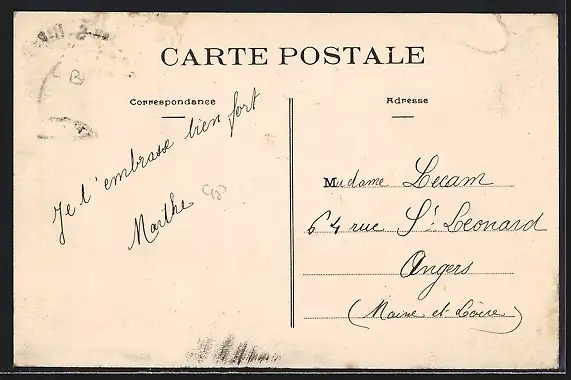 CARTE POSTALE
Correspondance
Adresse
Je t'embrasse bien fort
Marthe
Madame Lecam
64 rue St. Leonard
Angers
(Maine et Loire)
B